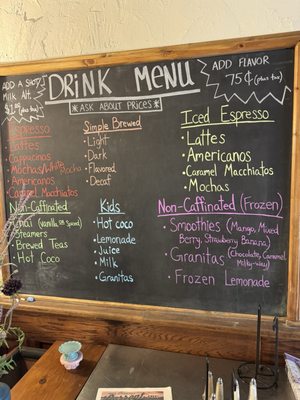 ADD A SHOT/
MILK ALT.
(plus tax)
DRINK MENU
*ASK ABOUT PRICES*
ADD FLAVOR
75¢ (plus tax)
Espresso
Lattes
Cappucinos
Mochas/White Mocha
Americanos
Caramel Macchiatos
Simple Brewed
• Light
• Dark
• Flavored
• Decaf
Iced Espresso
• Lattes
• Americanos
• Caramel Macchiatos
• Mochas
Non-Caffinated
Chai (Vanilla or Spiced)
Steamers
• Brewed Teas
• Hot Coco
Kids
• Hot coco
• Lemonade
• Juice
• Milk
• Granitas
Non-Caffinated (Frozen)
• Smoothies (Mango, Mixed
Berry, Strawberry Banana)
• Granitas (Chocolate, Caramel,
Milky-way)
• Frozen Lemonade